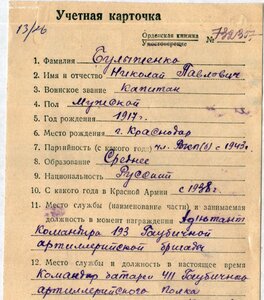 13/26
Учетная карточка
Орденская книжка
Удостоверение
№
1. Фамилия Булыженко
2. Имя и отчество Николай Павлович
3. Воинское звание Капитан
4. Пол Мужской
5. Год рождения 1917 г.
6. Место рождения г. Краснодар
7. Партийность (с какого года) чл. Вкп(б) с 1943 г.
8. Образование Среднее
9. Национальность Русский
10. С какого года в Красной Армии с 1938 г.
11. Место службы (наименование части) и занимаемая
должность в момент награждения Адъютант
Командира 193 Гаубичной
артиллерийской бригады
12. Место службы и должность в настоящее время
Командир батареи 411 Гаубичного
артиллерийского Полка